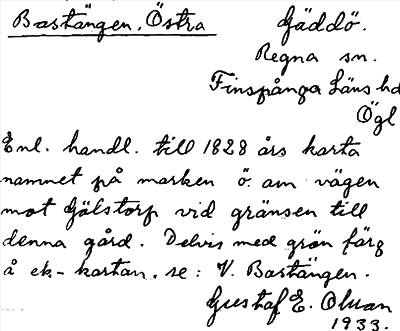 Bastängen, Östra Gäddö.
Regna sn.
Finspånga Läns hd
Ögl
Enl. handl. till 1828 års karta
namnet på marken ö. om vägen
mot Gälstorp vid gränsen till
denna gård. Delvis med grön färg
å ek-kartan. se: V. Bastängen.
Gustaf E. Olsson
1933.